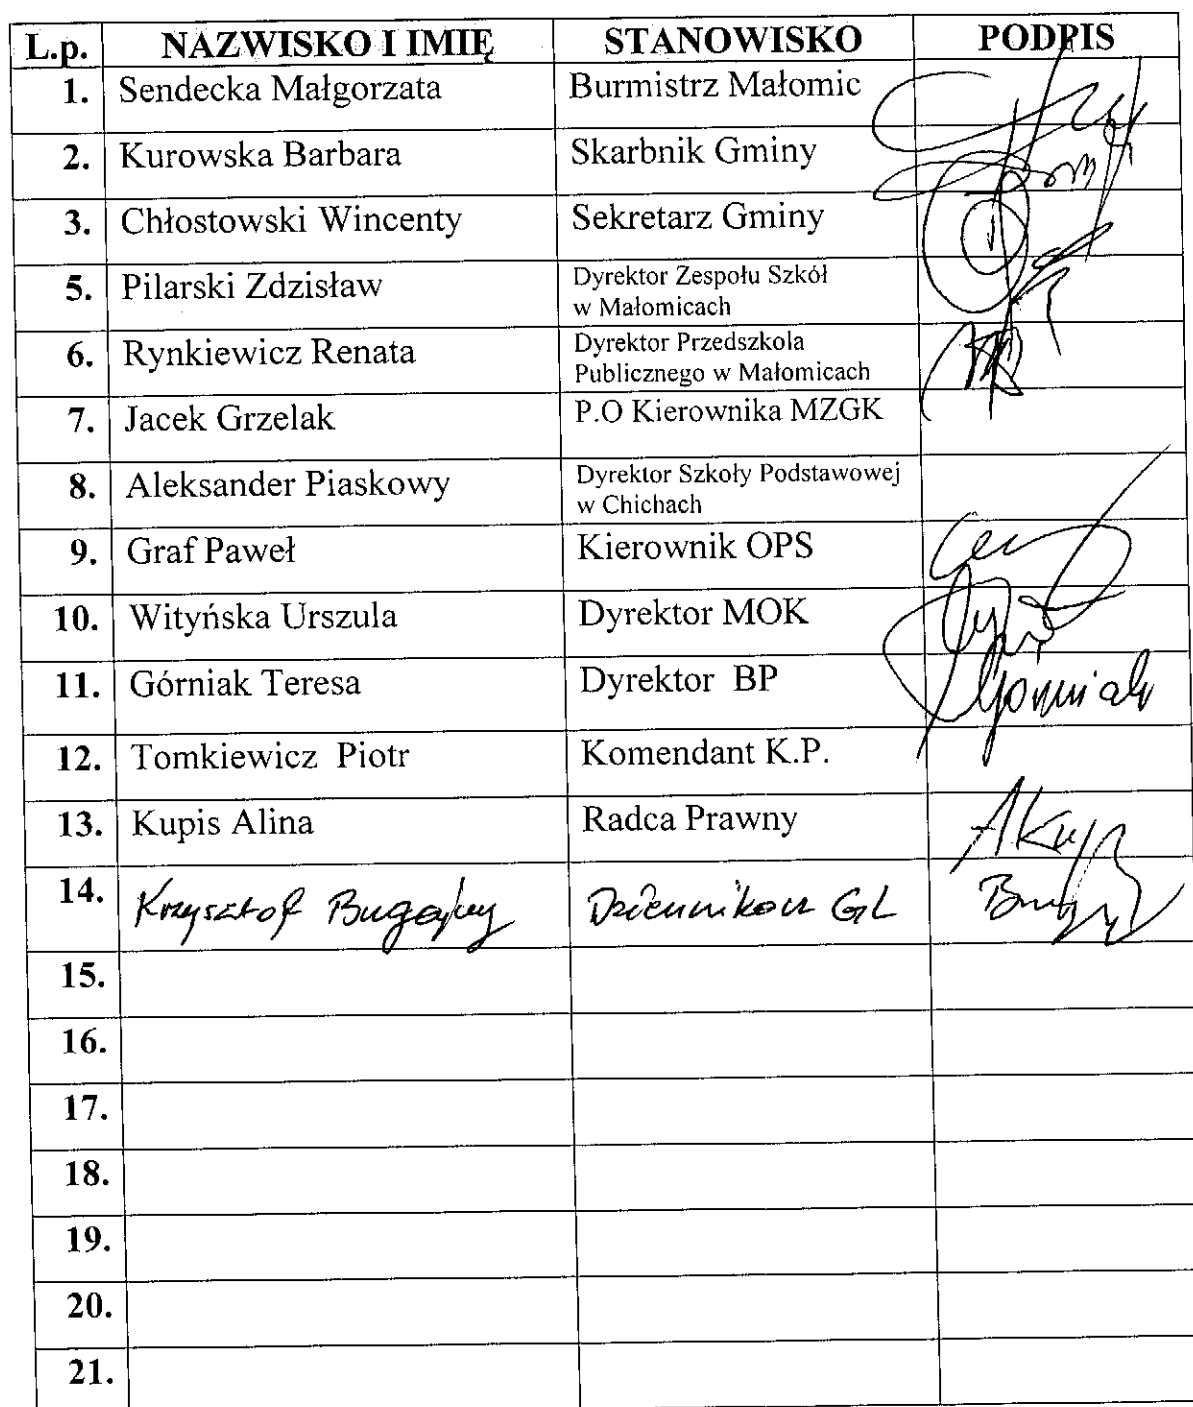 L.p. NAZWISKO I IMIĘ STANOWISKO PODPIS
1. Sendecka Małgorzata Burmistrz Małomic
2. Kurowska Barbara Skarbnik Gminy
3. Chłostowski Wincenty Sekretarz Gminy
5. Pilarski Zdzisław Dyrektor Zespołu Szkół
w Małomicach
6. Rynkiewicz Renata Dyrektor Przedszkola
Publicznego w Małomicach
7. Jacek Grzelak P.O Kierownika MZGK
8. Aleksander Piaskowy Dyrektor Szkoły Podstawowej
w Chichach
9. Graf Paweł Kierownik OPS
10. Wityńska Urszula Dyrektor MOK
11. Górniak Teresa Dyrektor BP Górniak
12. Tomkiewicz Piotr Komendant K.P.
13. Kupis Alina Radca Prawny
14. Krzysztof Bugajny Dziennikarz GL
15.
16.
17.
18.
19.
20.
21.